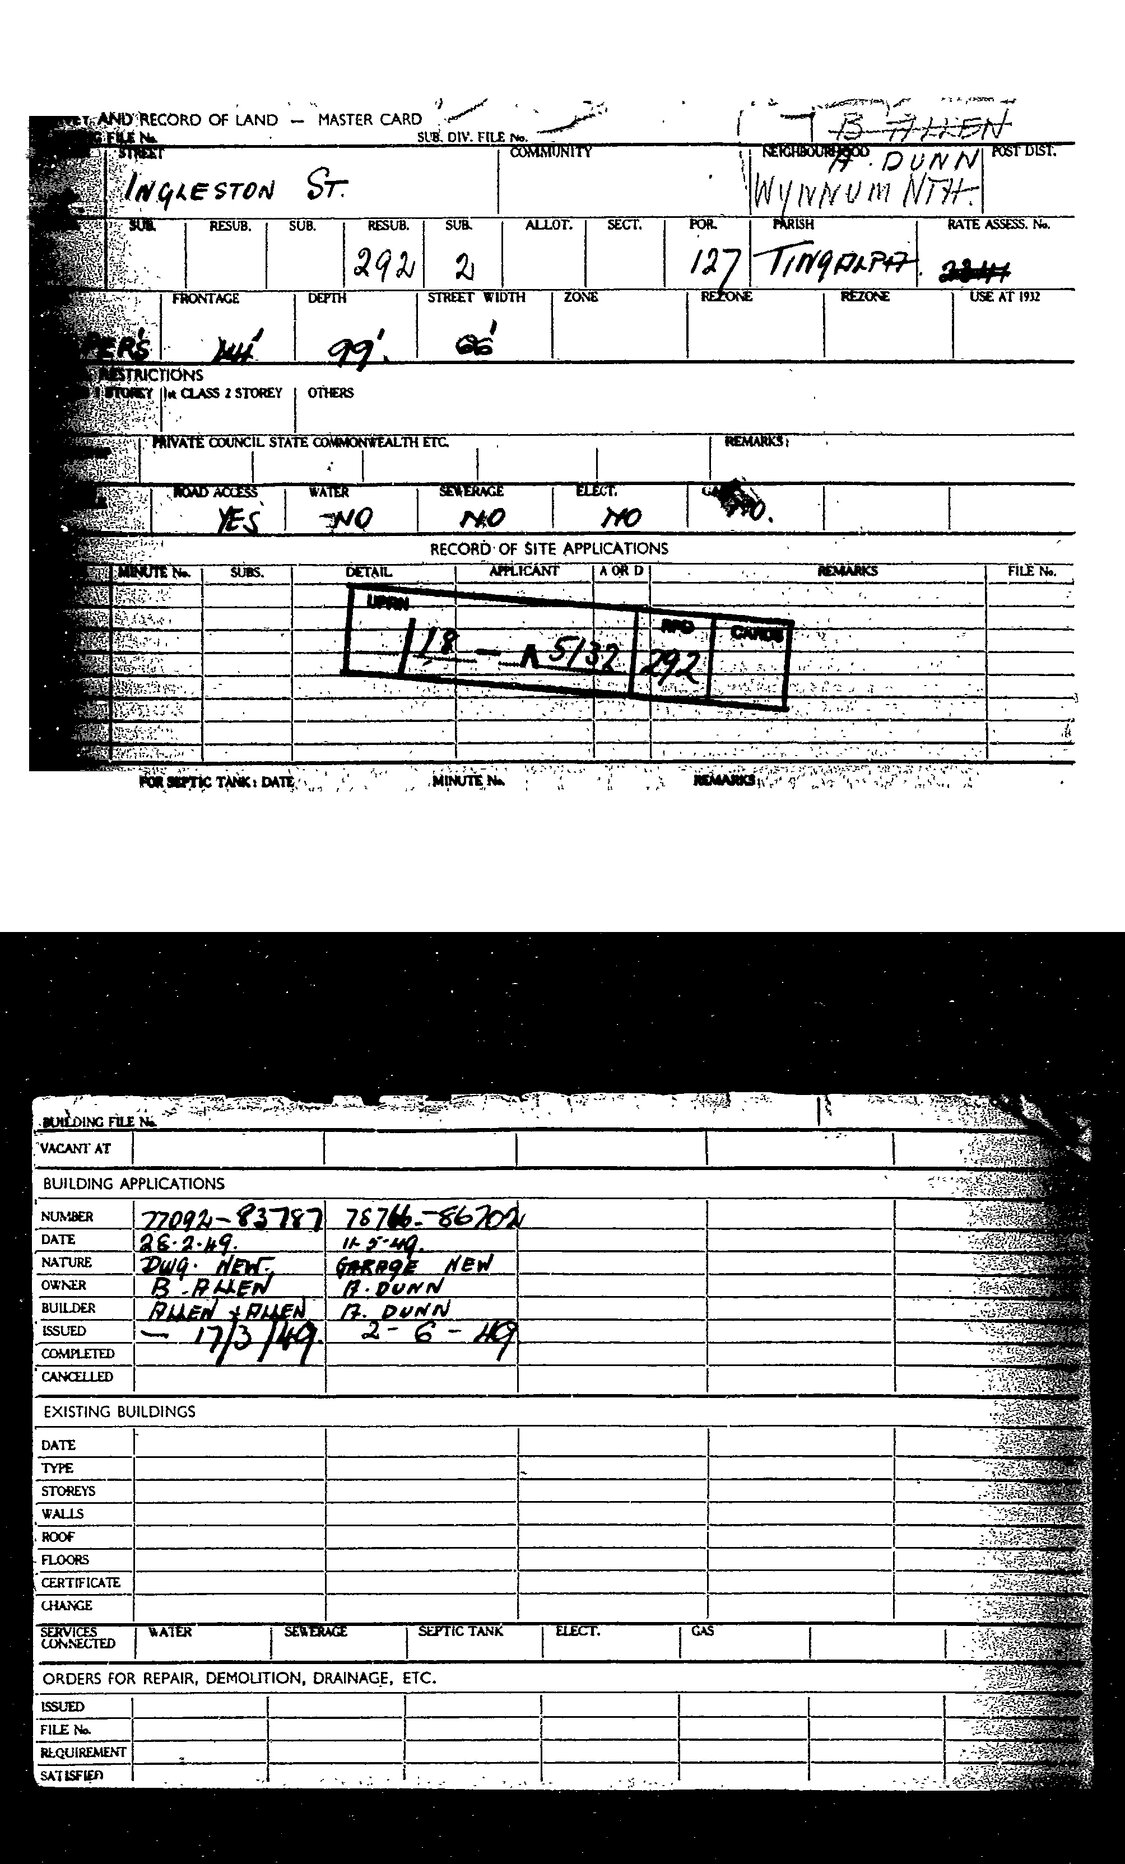 AND RECORD OF LAND — MASTER CARD
B ALLEN
FILE No. SUB. DIV. FILE No.
STREET COMMUNITY NEIGHBOURHOOD POST DIST.
A. DUNN
INGLESTON ST. WYNNUM NTH.
SUB. RESUB. SUB. RESUB. SUB. ALLOT. SECT. POR. PARISH RATE ASSESS. No.
292 2 127 TINGALPA
FRONTAGE DEPTH STREET WIDTH ZONE REZONE REZONE USE AT 1932
PER'S 99'. 66'
RESTRICTIONS
1 STOREY 1st CLASS 2 STOREY OTHERS
PRIVATE COUNCIL STATE COMMONWEALTH ETC. REMARKS:
ROAD ACCESS WATER SEWERAGE ELECT. GAS
YES NO NO NO NO.
RECORD OF SITE APPLICATIONS
MINUTE No. SUBS. DETAIL APPLICANT A OR D REMARKS FILE No.
UPRN RPD CARDS
118 — A 5132 292
FOR SEPTIC TANK: DATE MINUTE No. REMARKS:
BUILDING FILE No.
VACANT AT
BUILDING APPLICATIONS
NUMBER 77092-83787 78766-86702
DATE 28.2.49. 11-5-49.
NATURE DWG. NEW. GARAGE NEW
OWNER B. ALLEN A. DUNN
BUILDER ALLEN & ALLEN A. DUNN
ISSUED — 17/3/49. 2-6-49
COMPLETED
CANCELLED
EXISTING BUILDINGS
DATE
TYPE
STOREYS
WALLS
ROOF
FLOORS
CERTIFICATE
CHANGE
SERVICES CONNECTED WATER SEWERAGE SEPTIC TANK ELECT. GAS
ORDERS FOR REPAIR, DEMOLITION, DRAINAGE, ETC.
ISSUED
FILE No.
REQUIREMENT
SATISFIED